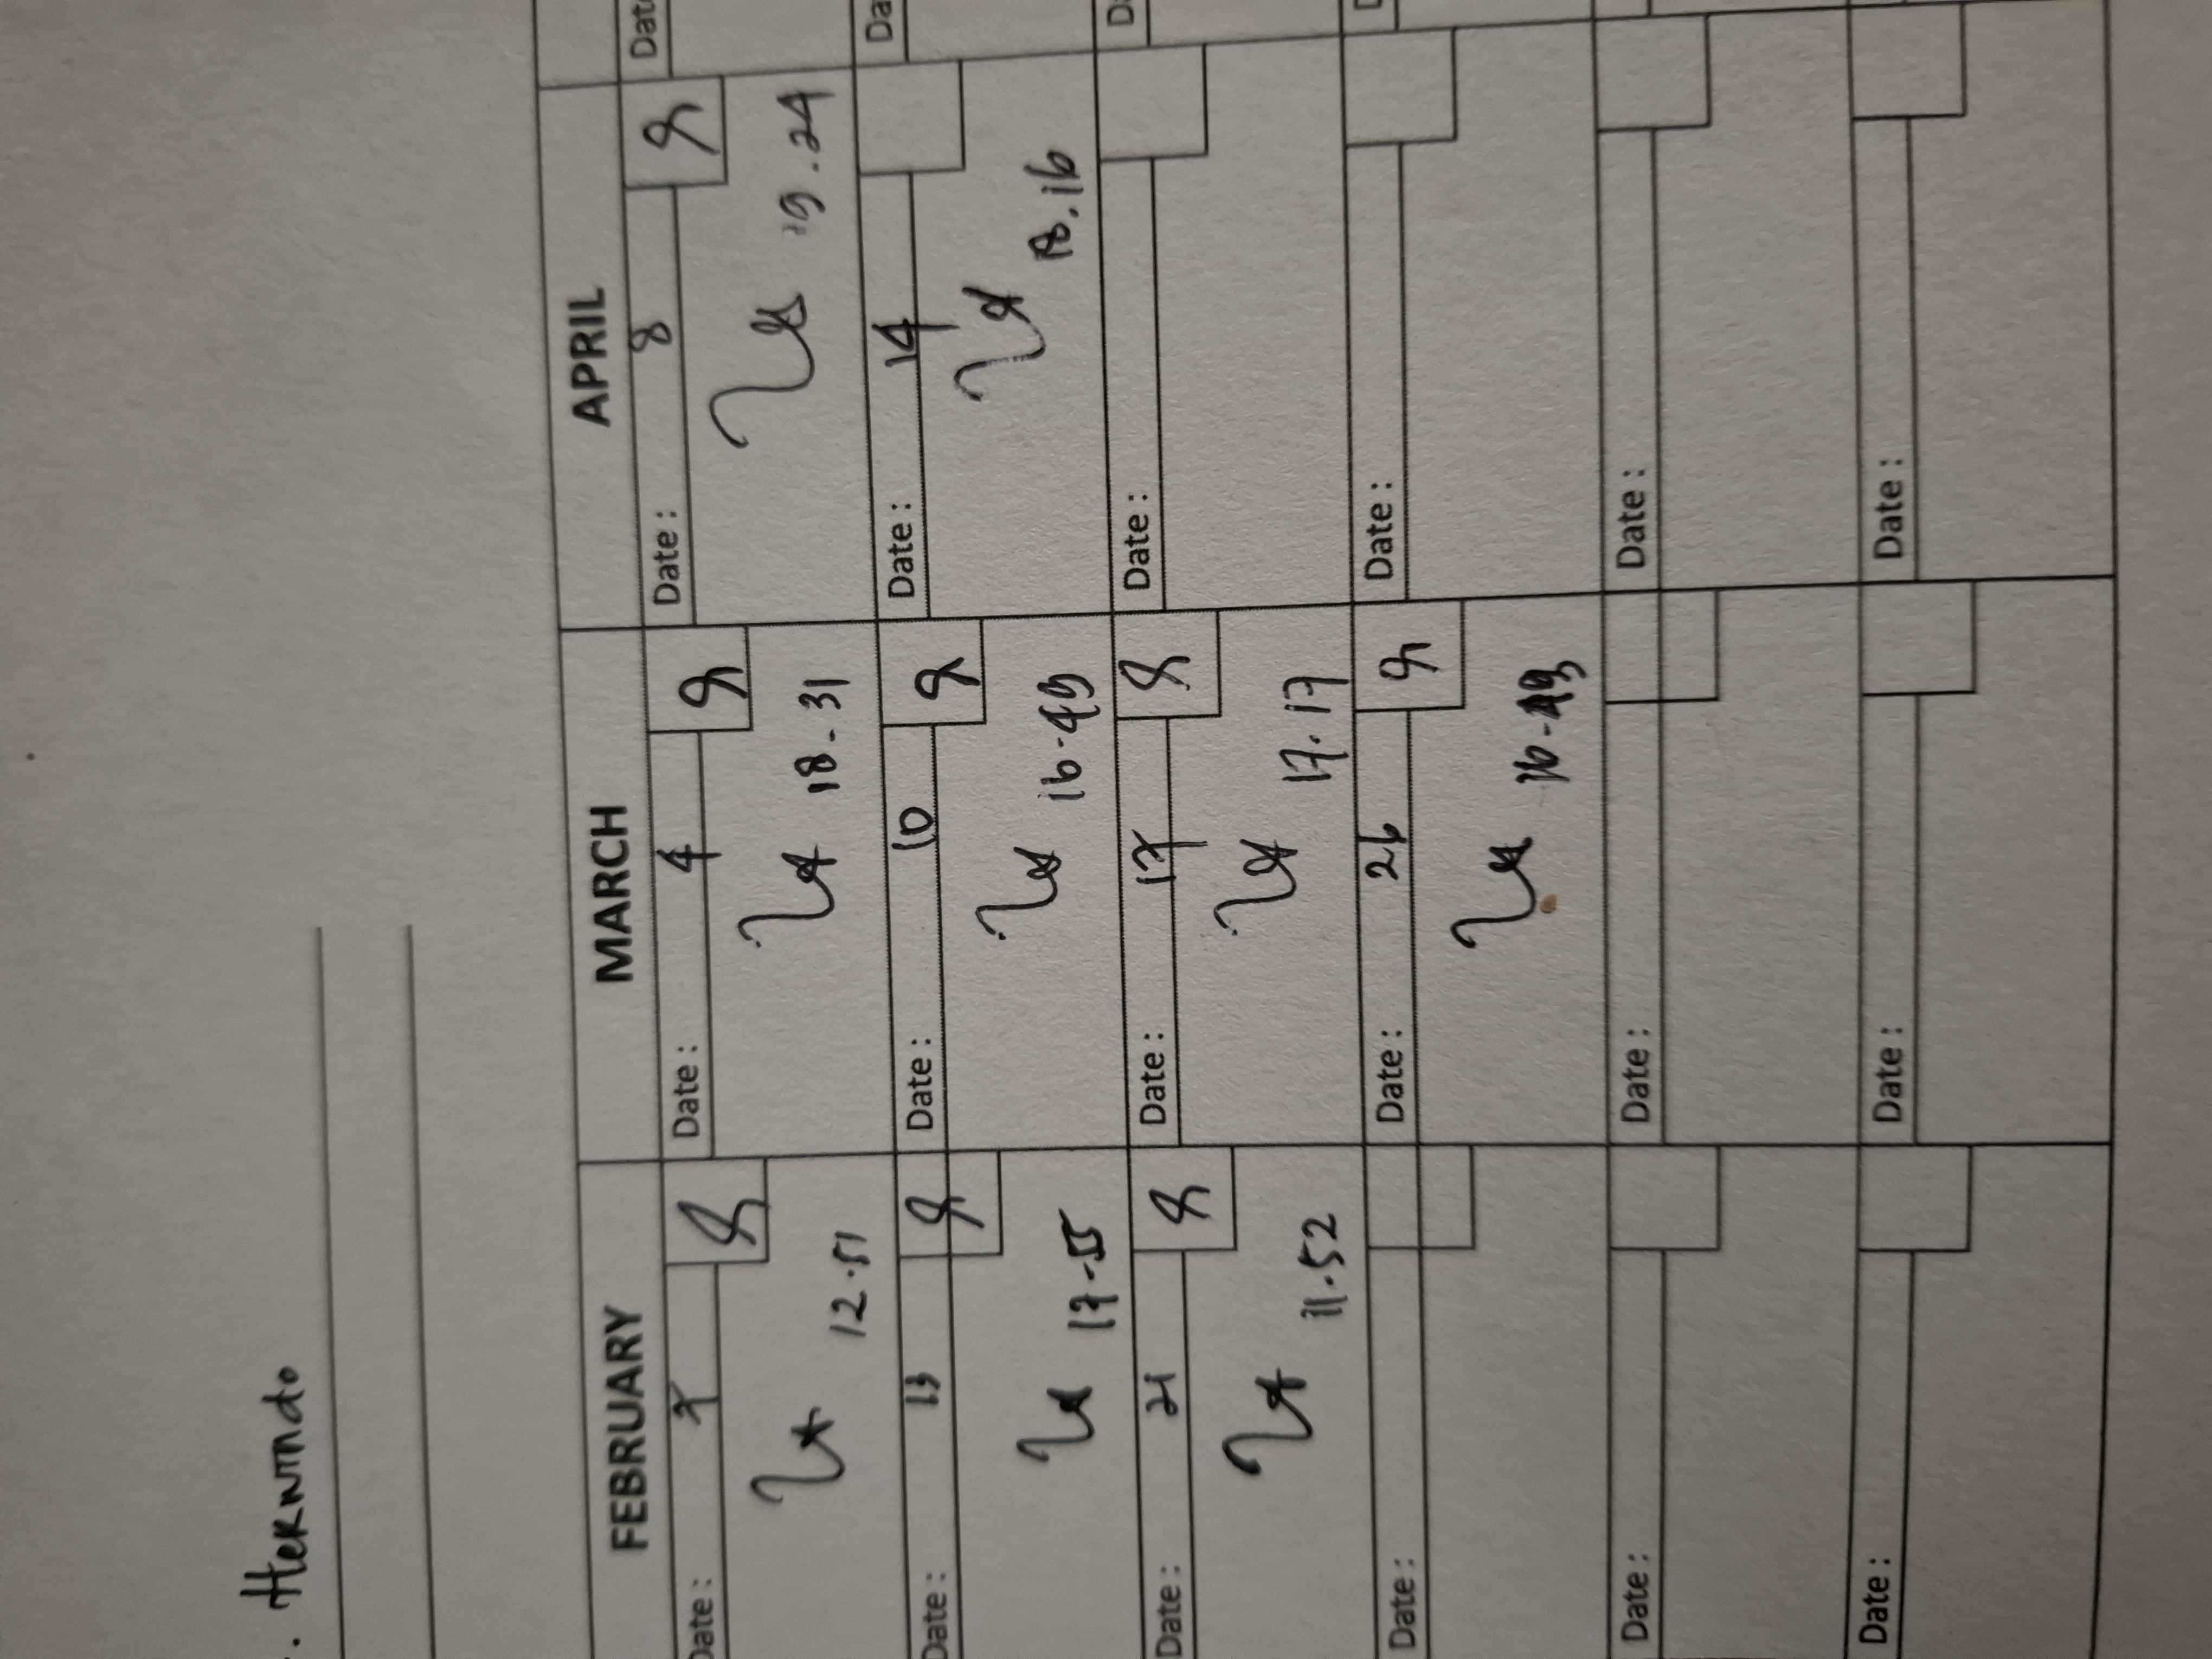 . Hernindo
FEBRUARY MARCH APRIL
Date: 7 Date: 4 Date: 8 Date
12.51 18-31 19.24
Date: 13 Date: 10 Date: 14 Da
17-55 16-49 18.16
Date: 21 Date: 17 Date:
11.52 17.17
Date: Date: 26 Date:
16-49
Date: Date: Date:
Date: Date: Date: